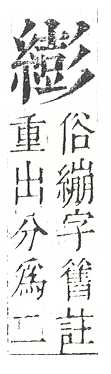 ⿰糹彭
俗繃字舊註
重出分爲二